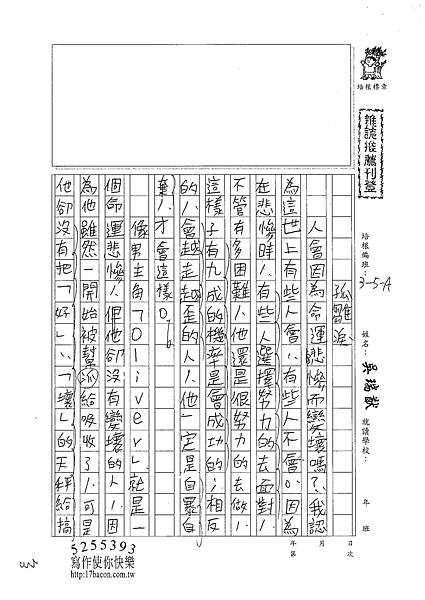 培根標章
雜誌推薦刊登
培根編班：3-5-A 姓名：吳 就讀學校： 年 班
第 次 月 日
孤雛淚
人會因為命運悲慘而變壞嗎？，我認
為這世上有些人會，有些人不會。因為
在悲慘時，有些人選擇努力的去面對，
不管有多困難，他還是很努力的去做，
這樣子有九成的機率是會成功的；相反
的，會越走越歪的人，他一定是自暴自
棄才會這樣。
像男主角「Oliver」就是一
個命運悲慘，但他卻沒有變壞的人，因
為他雖然一開始被幫派給吸收了，可是
他卻沒有把「好」、「壞」的天秤給搞
5255393
寫作使你快樂
http://17bacon.com.tw/